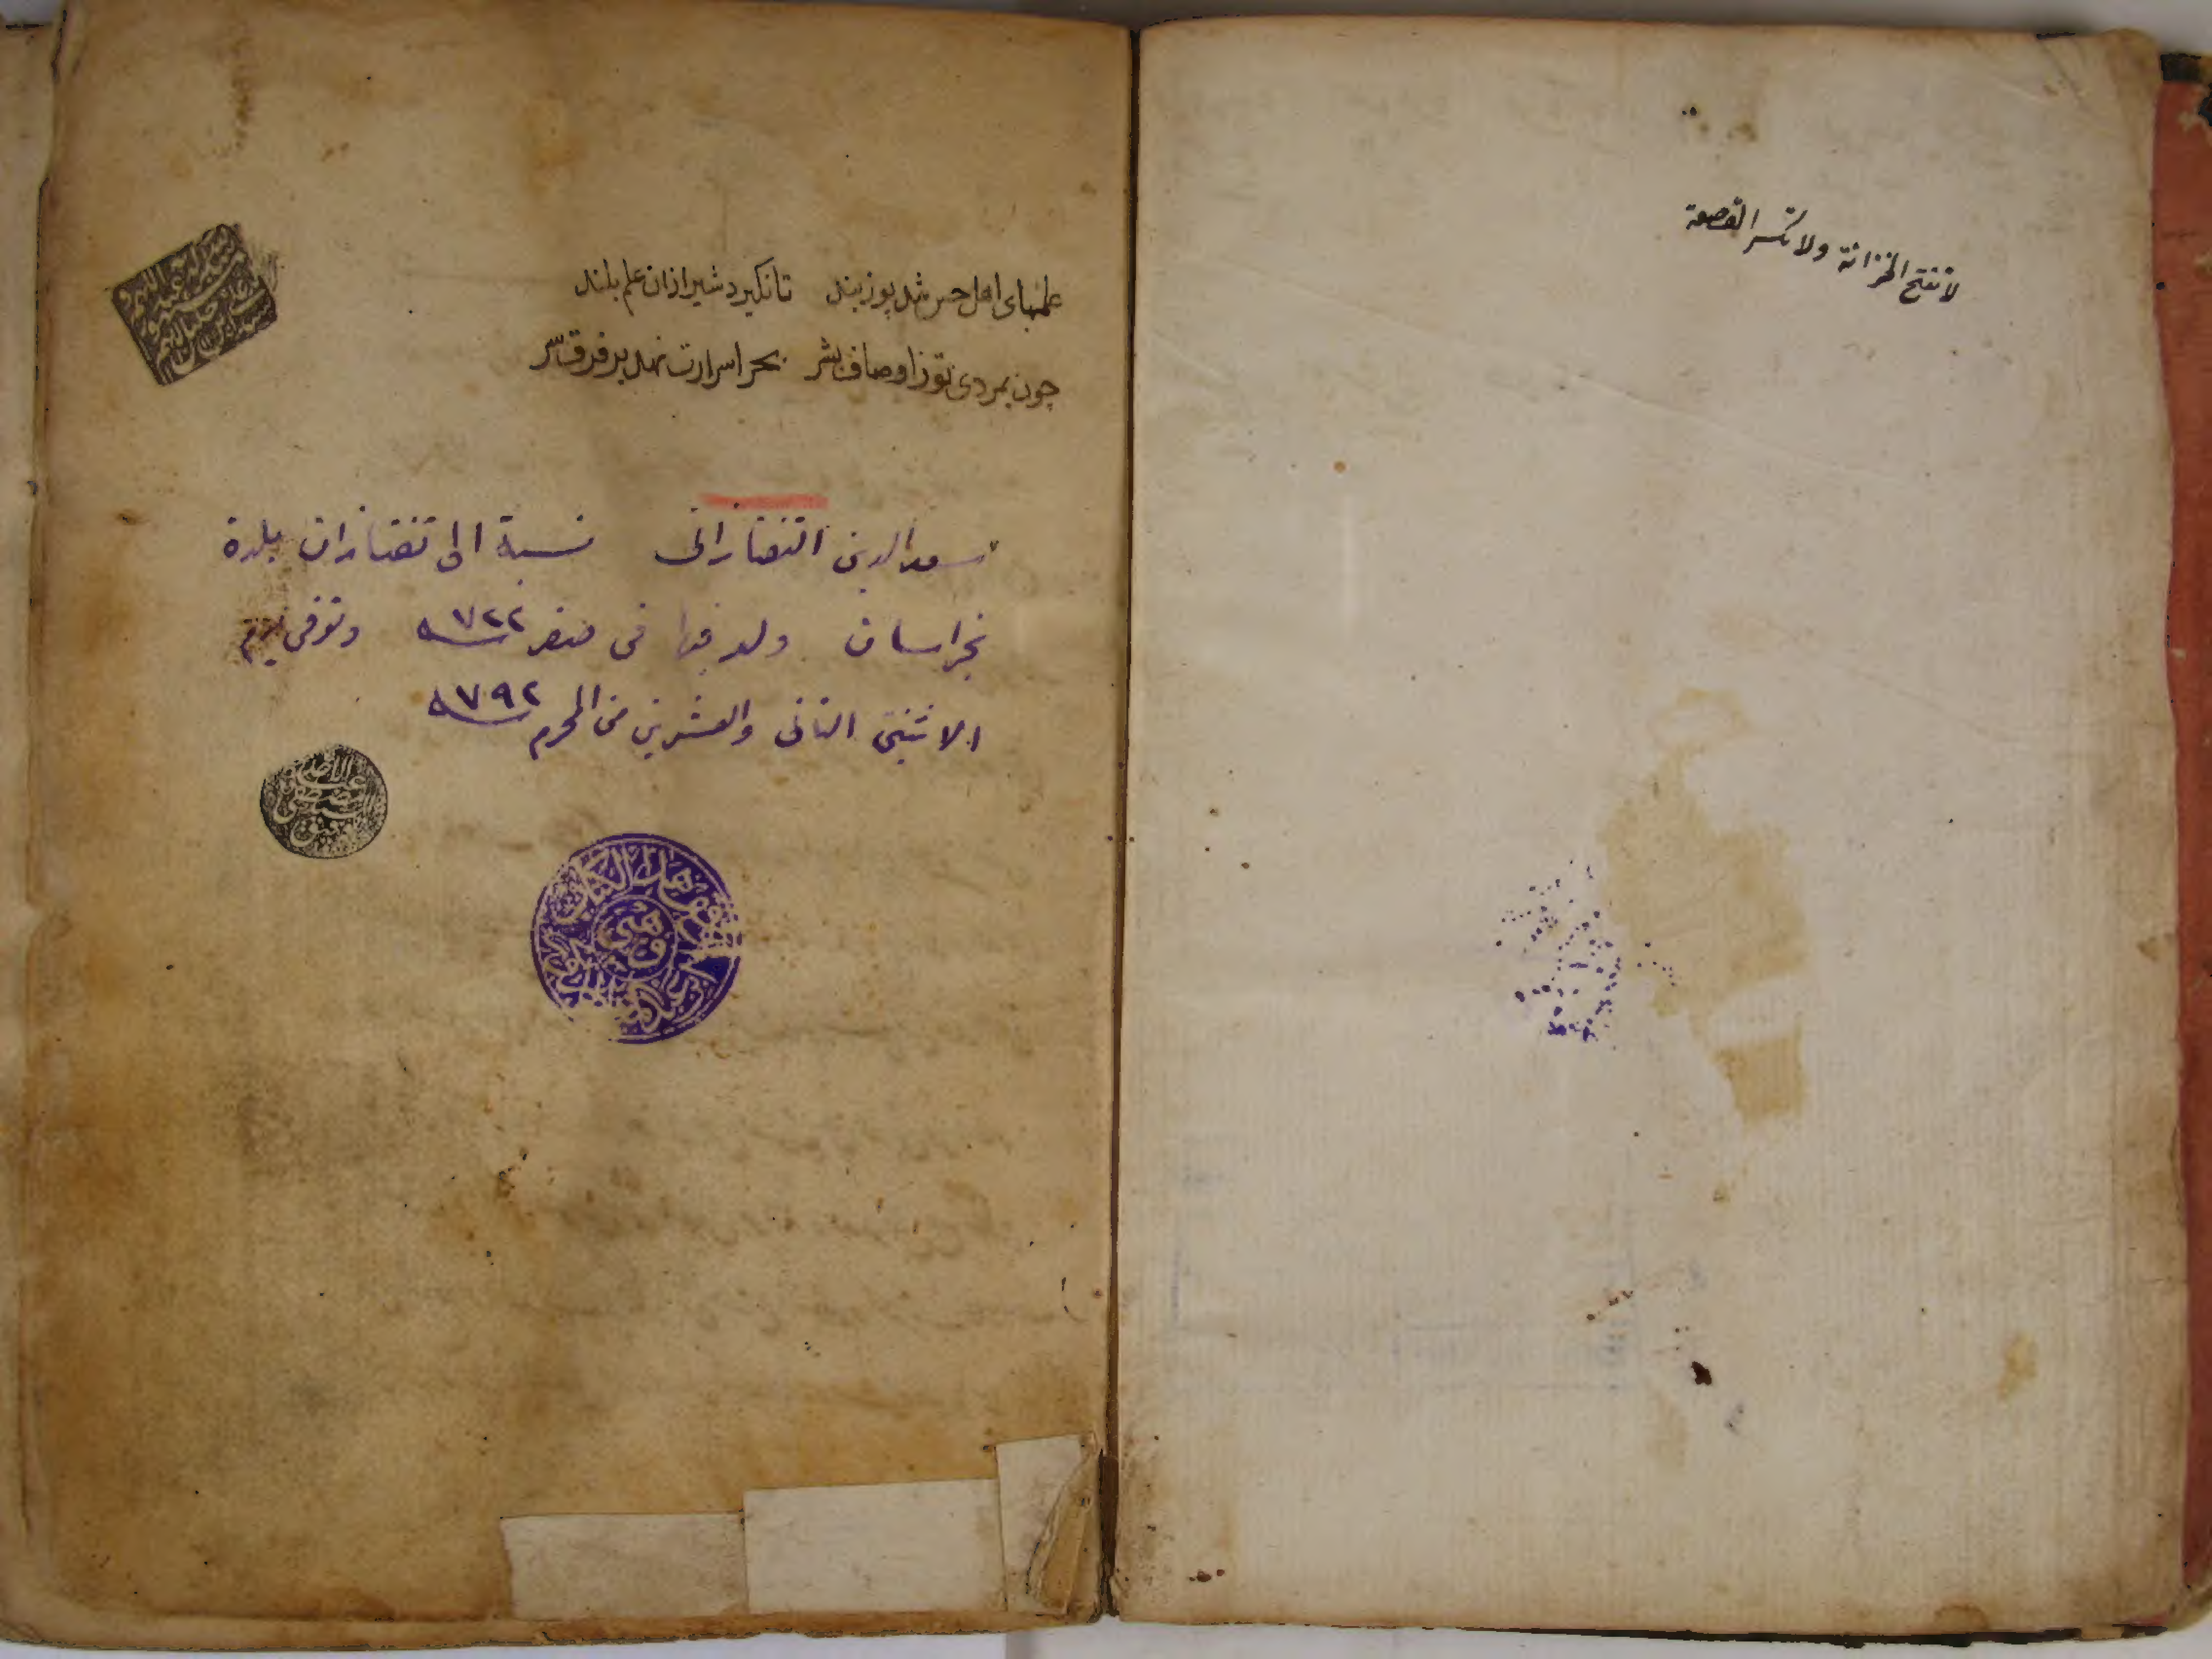 لا تفتح الخزانة ولا تكسر القصعة
علمهای اهل حس شد پوزبند تا نكیرد شیر ازان علم بلند
چون بمردی تو ز اوصاف بشر بحر اسرارت نهد بر فرق سر
سعد الدين التفتازانى نسبة الى تفتازان بلدة
بخراسان ولد فيها فى صفر سنة ٧٢٢ وتوفى يوم
الاثنين الثانى والعشرين من المحرم سنة ٧٩٢